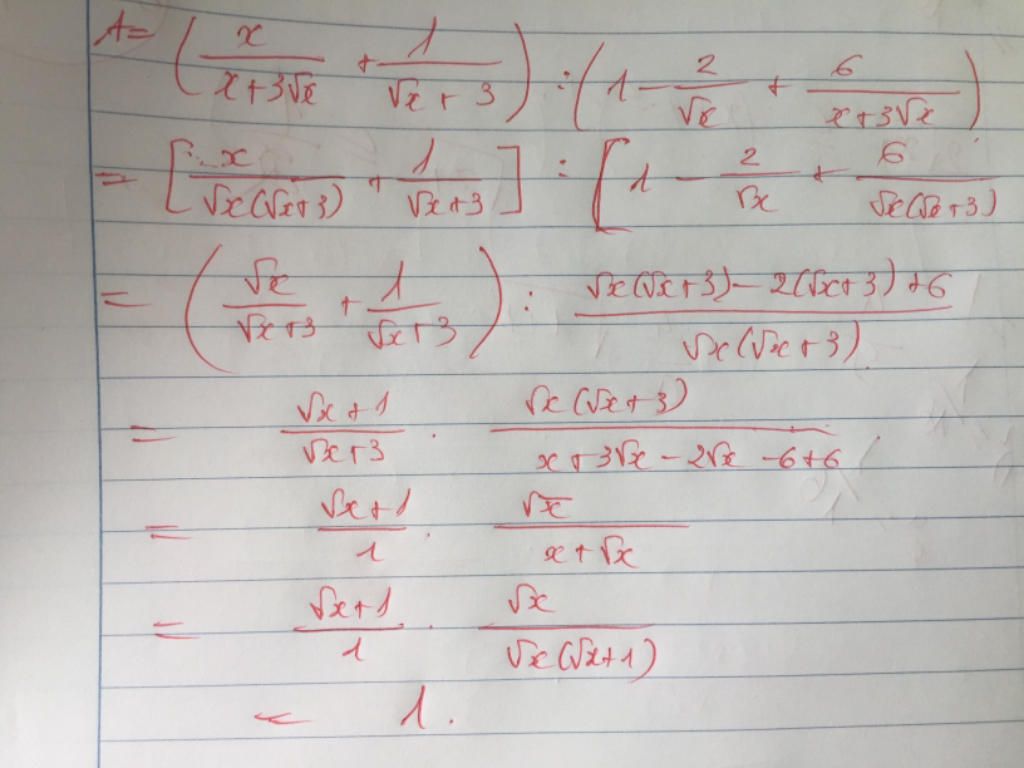 A = ( x / (x + 3√x) + 1 / (√x + 3) ) : ( 1 - 2 / √x + 6 / (x + 3√x) )
= [ x / (√x(√x+3)) + 1 / (√x+3) ] : [ 1 - 2 / √x + 6 / (√x(√x+3))
= ( √x / (√x+3) + 1 / (√x+3) ) : (√x(√x+3) - 2(√x+3) + 6) / (√x(√x+3))
= (√x+1) / (√x+3) . (√x(√x+3)) / (x + 3√x - 2√x - 6 + 6)
= (√x+1) / 1 . √x / (x + √x)
= (√x+1) / 1 . √x / (√x(√x+1))
= 1.